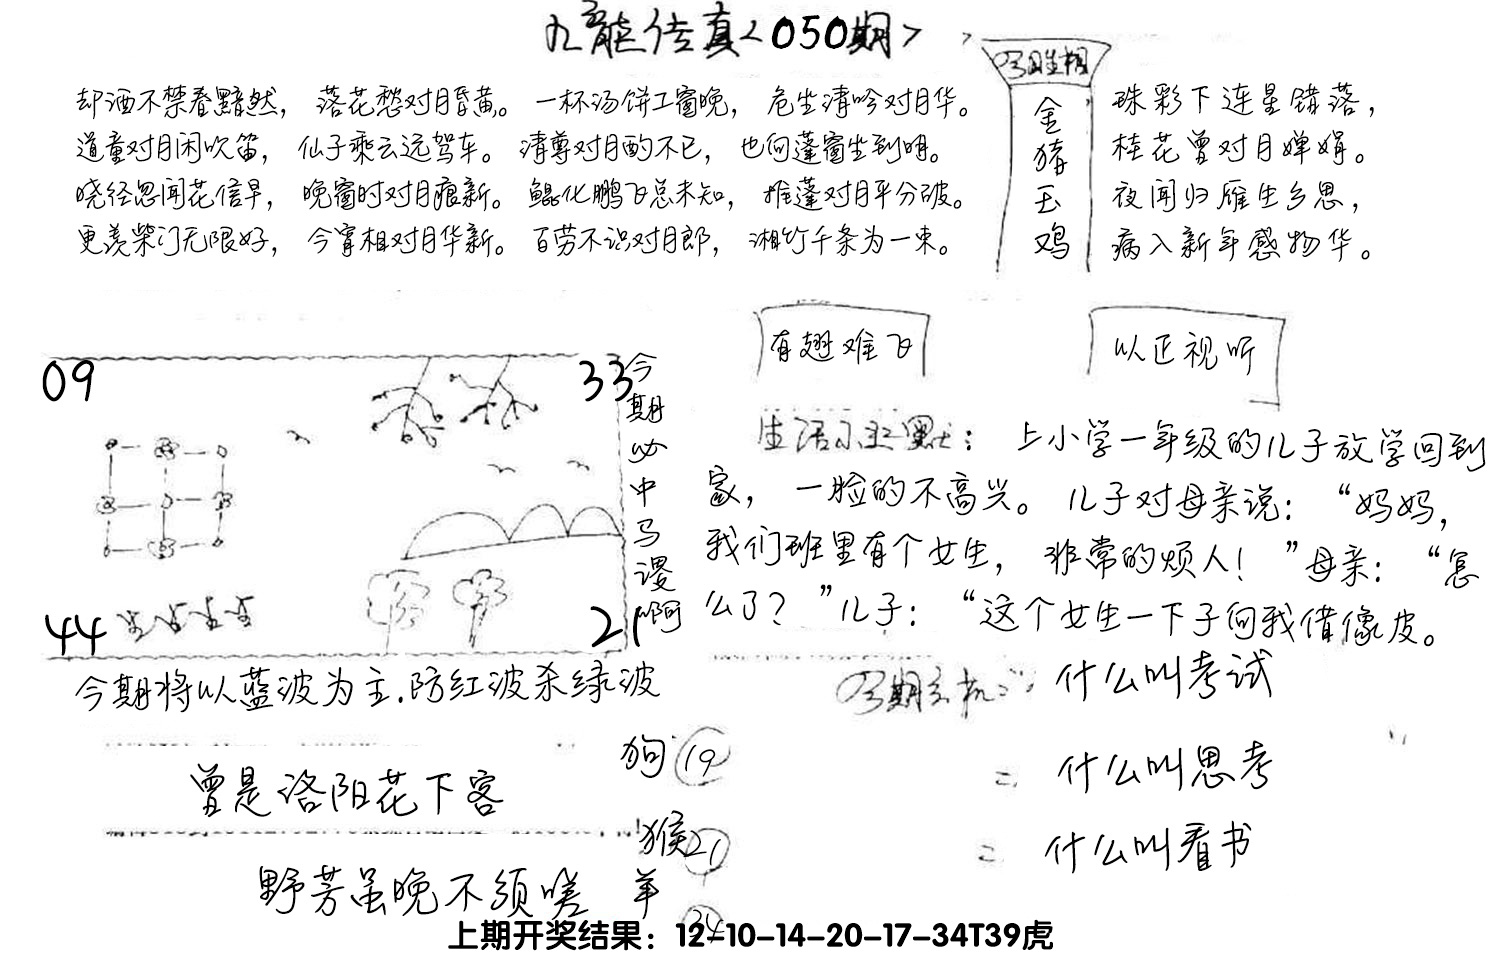 九龍传真<050期>
却酒不禁春黯然，落花愁对月昏黄。一杯汤饼工窗晚，危坐清吟对月华。
道童对月闲吹笛，仙子乘云远驾车。清尊对月酌不已，也向蓬窗坐到明。
晓径忽闻花信早，晚窗时对月痕新。鲲化鹏飞总未知，推蓬对月平分破。
更羡柴门无限好，今宵相对月华新。百劳不识对月郎，湘竹千条为一束。
今期生相
金猪玉鸡
珠彩下连星错落，
桂花曾对月婵娟。
夜闻归雁生乡思，
病入新年感物华。
有翅难飞
以正视听
09
33
44
21
今期必中马谡啊
生活小幽默：上小学一年级的儿子放学回到
家，一脸的不高兴。儿子对母亲说：“妈妈，
我们班里有个女生，非常的烦人！”母亲：“怎
么了？”儿子：“这个女生一下子向我借像皮。
今期将以蓝波为主.防红波杀绿波
今期玄机二：什么叫考试
= 什么叫思考
= 什么叫看书
曾是洛阳花下客
野芳虽晚不须嗟
狗 19
猴 21
羊 34
上期开奖结果：12-10-14-20-17-34T39虎